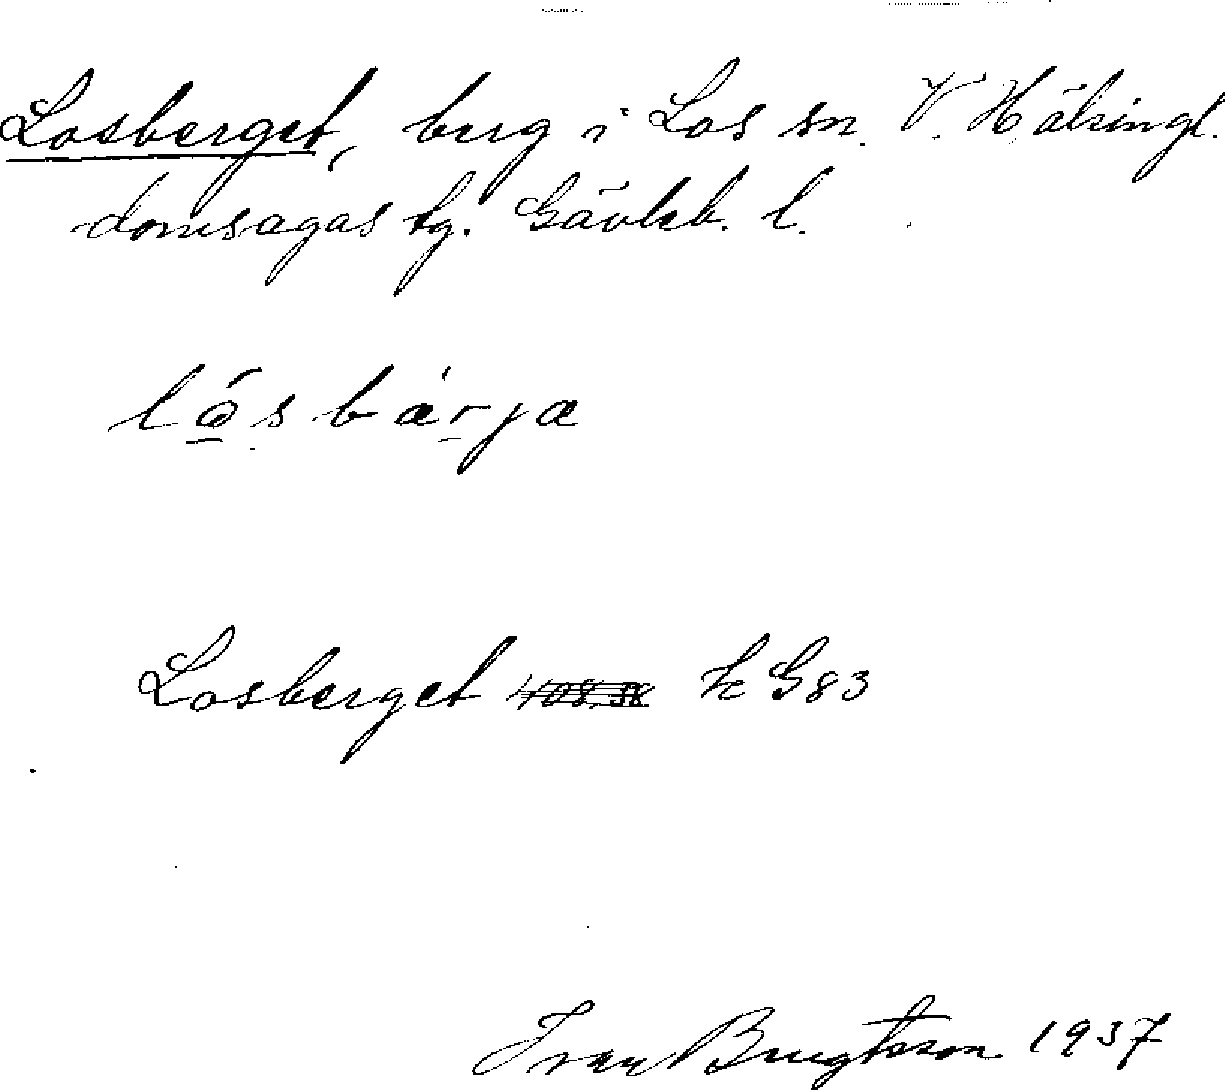 Losberget, berg i Los sn. V. Hälsingl.
domsagas tg. Gävleb. l.
låsbärja
Losberget k G83
Ivar Bengtsson 1937